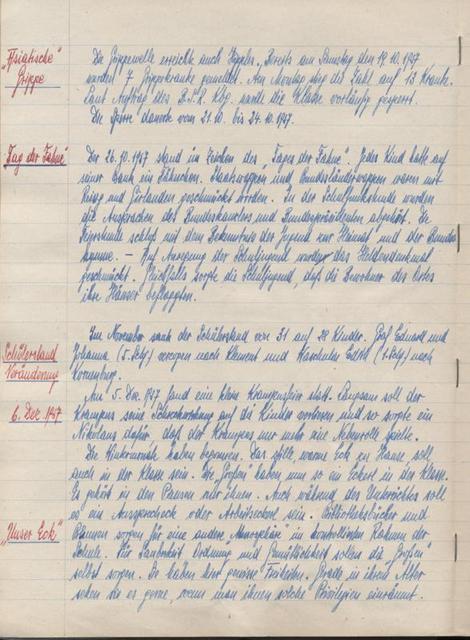 "Asiatische"
Grippe
Die Grippewelle erreichte auch Bereits am Samstag den 19.10.1957
wurden 7 Grippekranke gemeldet. Am Montag stieg die Zahl auf 13 Kranke.
Laut Auftrag des B.S.R. Kbg. wurde die Klasse vorläufig gesperrt.
Die Sperre dauerte vom 21.10. bis 24.10.1957.
"Tag der Fahne"
Der 26.10.1957 stand im Zeichen des "Tages der Fahne". Jedes Kind hatte auf
seiner Bank ein Fähnchen. Staatswappen und Bundesländerwappen waren mit
Reisig und Girlanden geschmückt worden. In der Schulfunkstunde wurden
die Ansprachen des Bundeskanzlers und Bundespräsidenten abgehört. Die
Feierstunde schloß mit dem Bekenntnis der Jugend zur Heimat und der Bundes-
hymne. — Auf Anregung der Schuljugend wurde das Heldendenkmal
geschmückt. Gleichfalls sorgte die Schuljugend, daß die Bewohner des Ortes
ihre Häuser beflaggten.
Schülerstand
Veränderung
Im November sank der Schülerstand von 31 auf 28 Kinder. Graf Eduard und
Johanna (5. Schg) verzogen nach Klement und Edith (1. Schg) nach
Korneuburg.
6. Dez 1957
Am 5. Dez. 1957 fand eine kleine Krampusfeier statt. Langsam soll der
Krampus seine Schreckwirkung auf die Kinder verlieren und so sorgte ein
Nikolaus dafür, daß der Krampus nur mehr eine Nebenrolle spielte.
"Unser Eck"
Die Wintermonate haben begonnen. Das stille, warme Eck zu Hause soll
auch in der Klasse sein. Die "Großen" haben nun so ein Eckerl in der Klasse.
Es gehört in den Pausen nur ihnen. Auch während des Unterrichtes soll
es ein Aussprache- oder Arbeitseckerl sein. Bibliotheksbücher und
Blumen sorgen für eine andere "Atmosphäre" im Rahmen der
Schule. Für Sauberkeit, Ordnung und Gemütlichkeit sollen die "Großen"
selbst sorgen. Sie haben hier gewisse Freiheiten. Gerade in ihrem Alter
sehen sie es gerne, wenn man ihnen solche Privilegien einräumt.